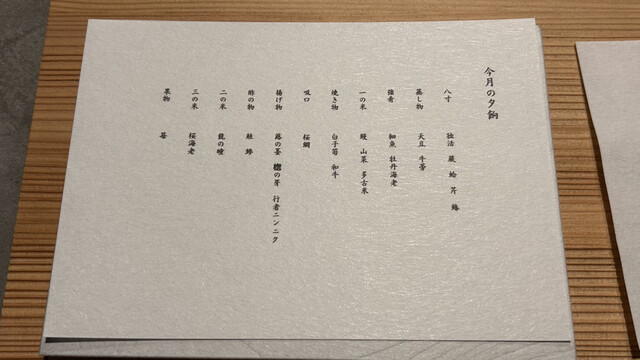 今月の夕餉
八寸 独活 蕨 蛤 芹
蒸し物 天豆 牛蒡
強肴 細魚 牡丹海老
一の米 鰻 山菜 多古米
焼き物 白子筍 和牛
吸口 桜鯛
揚げ物 蕗の薹 楤の芽 行者ニンニク
酢の物
二の米 龍の瞳
三の米 桜海老
果物 苺